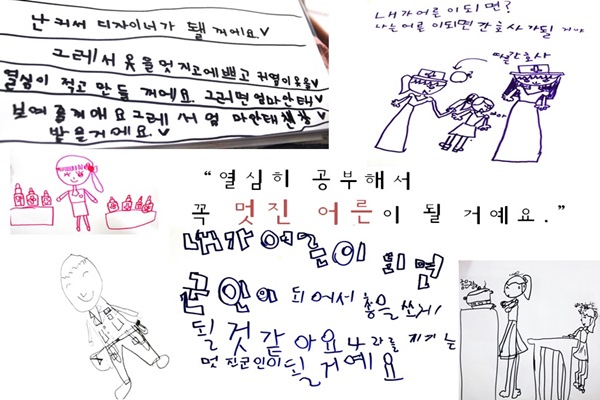 난 커서 디자이너가 될 꺼에요.♥
그레서 옷을멋지고에쁘고 귀엽이옷을♥
열심이 적고 만들 꺼에요. 그러면 엄마안태♥
보여 줄꺼애요 그레서 엄마안태 칭찬♥
받을거에요.♥
내가어른이되면?
나는어른이되면 간호사가될 거야
간호사
“열심히 공부해서
꼭 멋진 어른이 될 거예요.”
내가 어른이 되면
군인이 되어서 총을 쏘게
될 것 같아요 나라를 지키는
멋진군인이 될 거예요